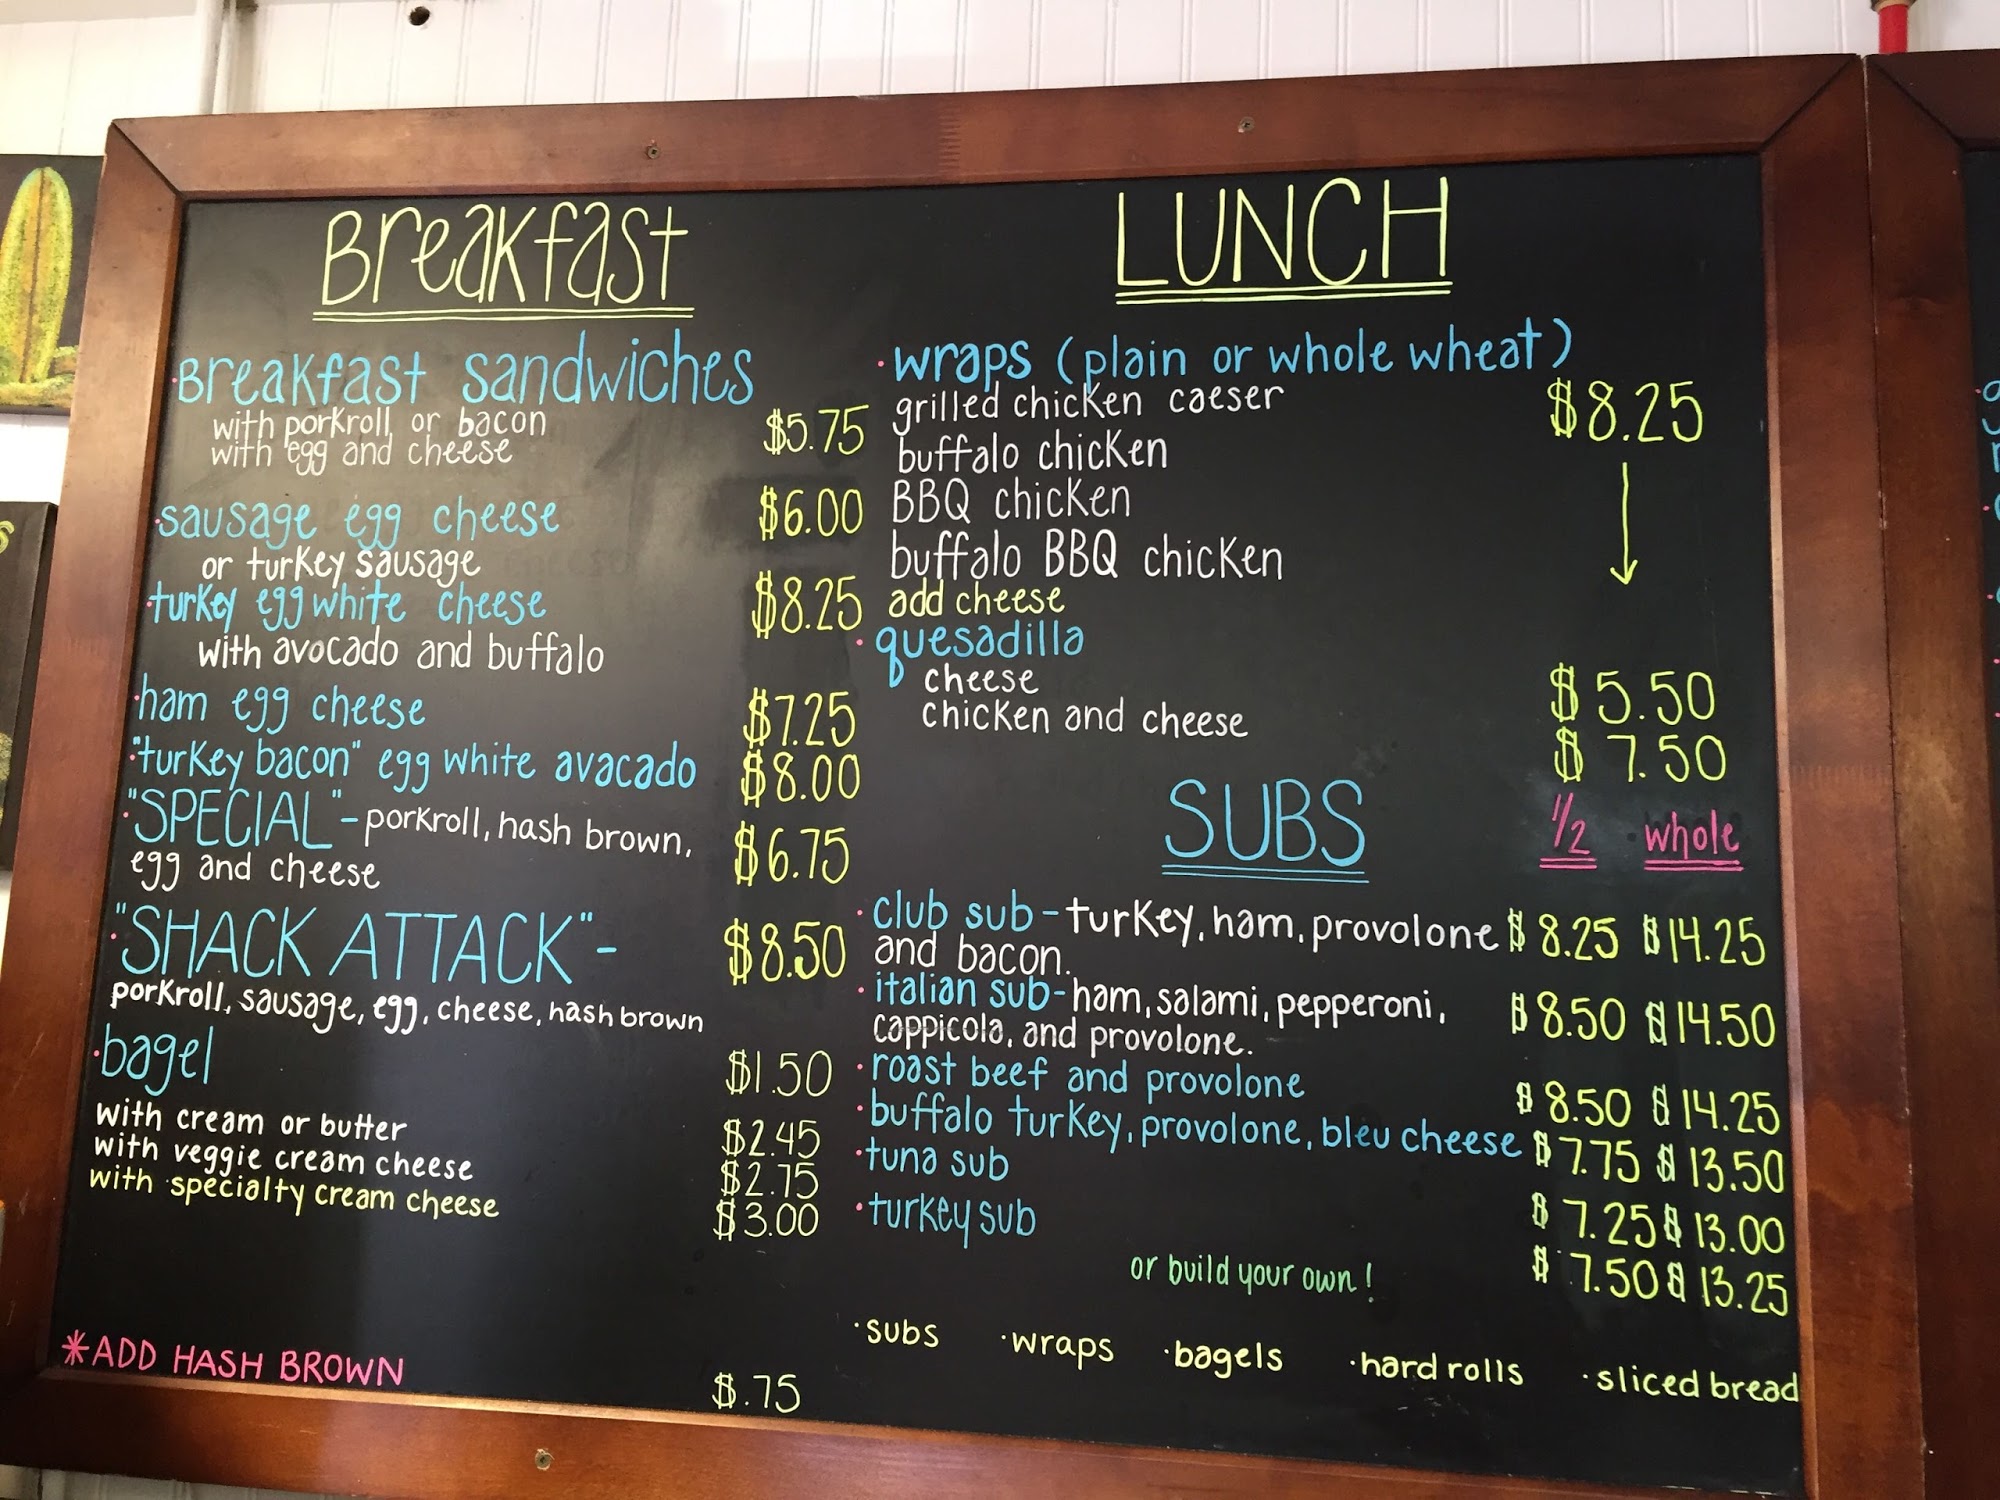 Breakfast
·Breakfast sandwiches
with porkroll or bacon $5.75
with egg and cheese
·sausage egg cheese $6.00
or turkey sausage
·turkey egg white cheese $8.25
with avocado and buffalo
·ham egg cheese $7.25
·"turkey bacon" egg white avacado $8.00
·"SPECIAL"- porkroll, hash brown, $6.75
egg and cheese
·"SHACK ATTACK"- $8.50
porkroll, sausage, egg, cheese, hash brown
·bagel $1.50
with cream or butter $2.45
with veggie cream cheese $2.75
with specialty cream cheese $3.00
*ADD HASH BROWN $.75
LUNCH
·wraps (plain or whole wheat)
grilled chicken caeser $8.25
buffalo chicken
BBQ chicken
buffalo BBQ chicken
add cheese
·quesadilla
cheese $5.50
chicken and cheese $7.50
SUBS 1/2 whole
·club sub- turkey, ham, provolone $8.25 $14.25
and bacon.
·italian sub- ham, salami, pepperoni, $8.50 $14.50
cappicola, and provolone.
·roast beef and provolone $8.50 $14.25
·buffalo turkey, provolone, bleu cheese $7.75 $13.50
·tuna sub $7.25 $13.00
·turkey sub $7.50 $13.25
or build your own!
·subs ·wraps ·bagels ·hard rolls ·sliced bread